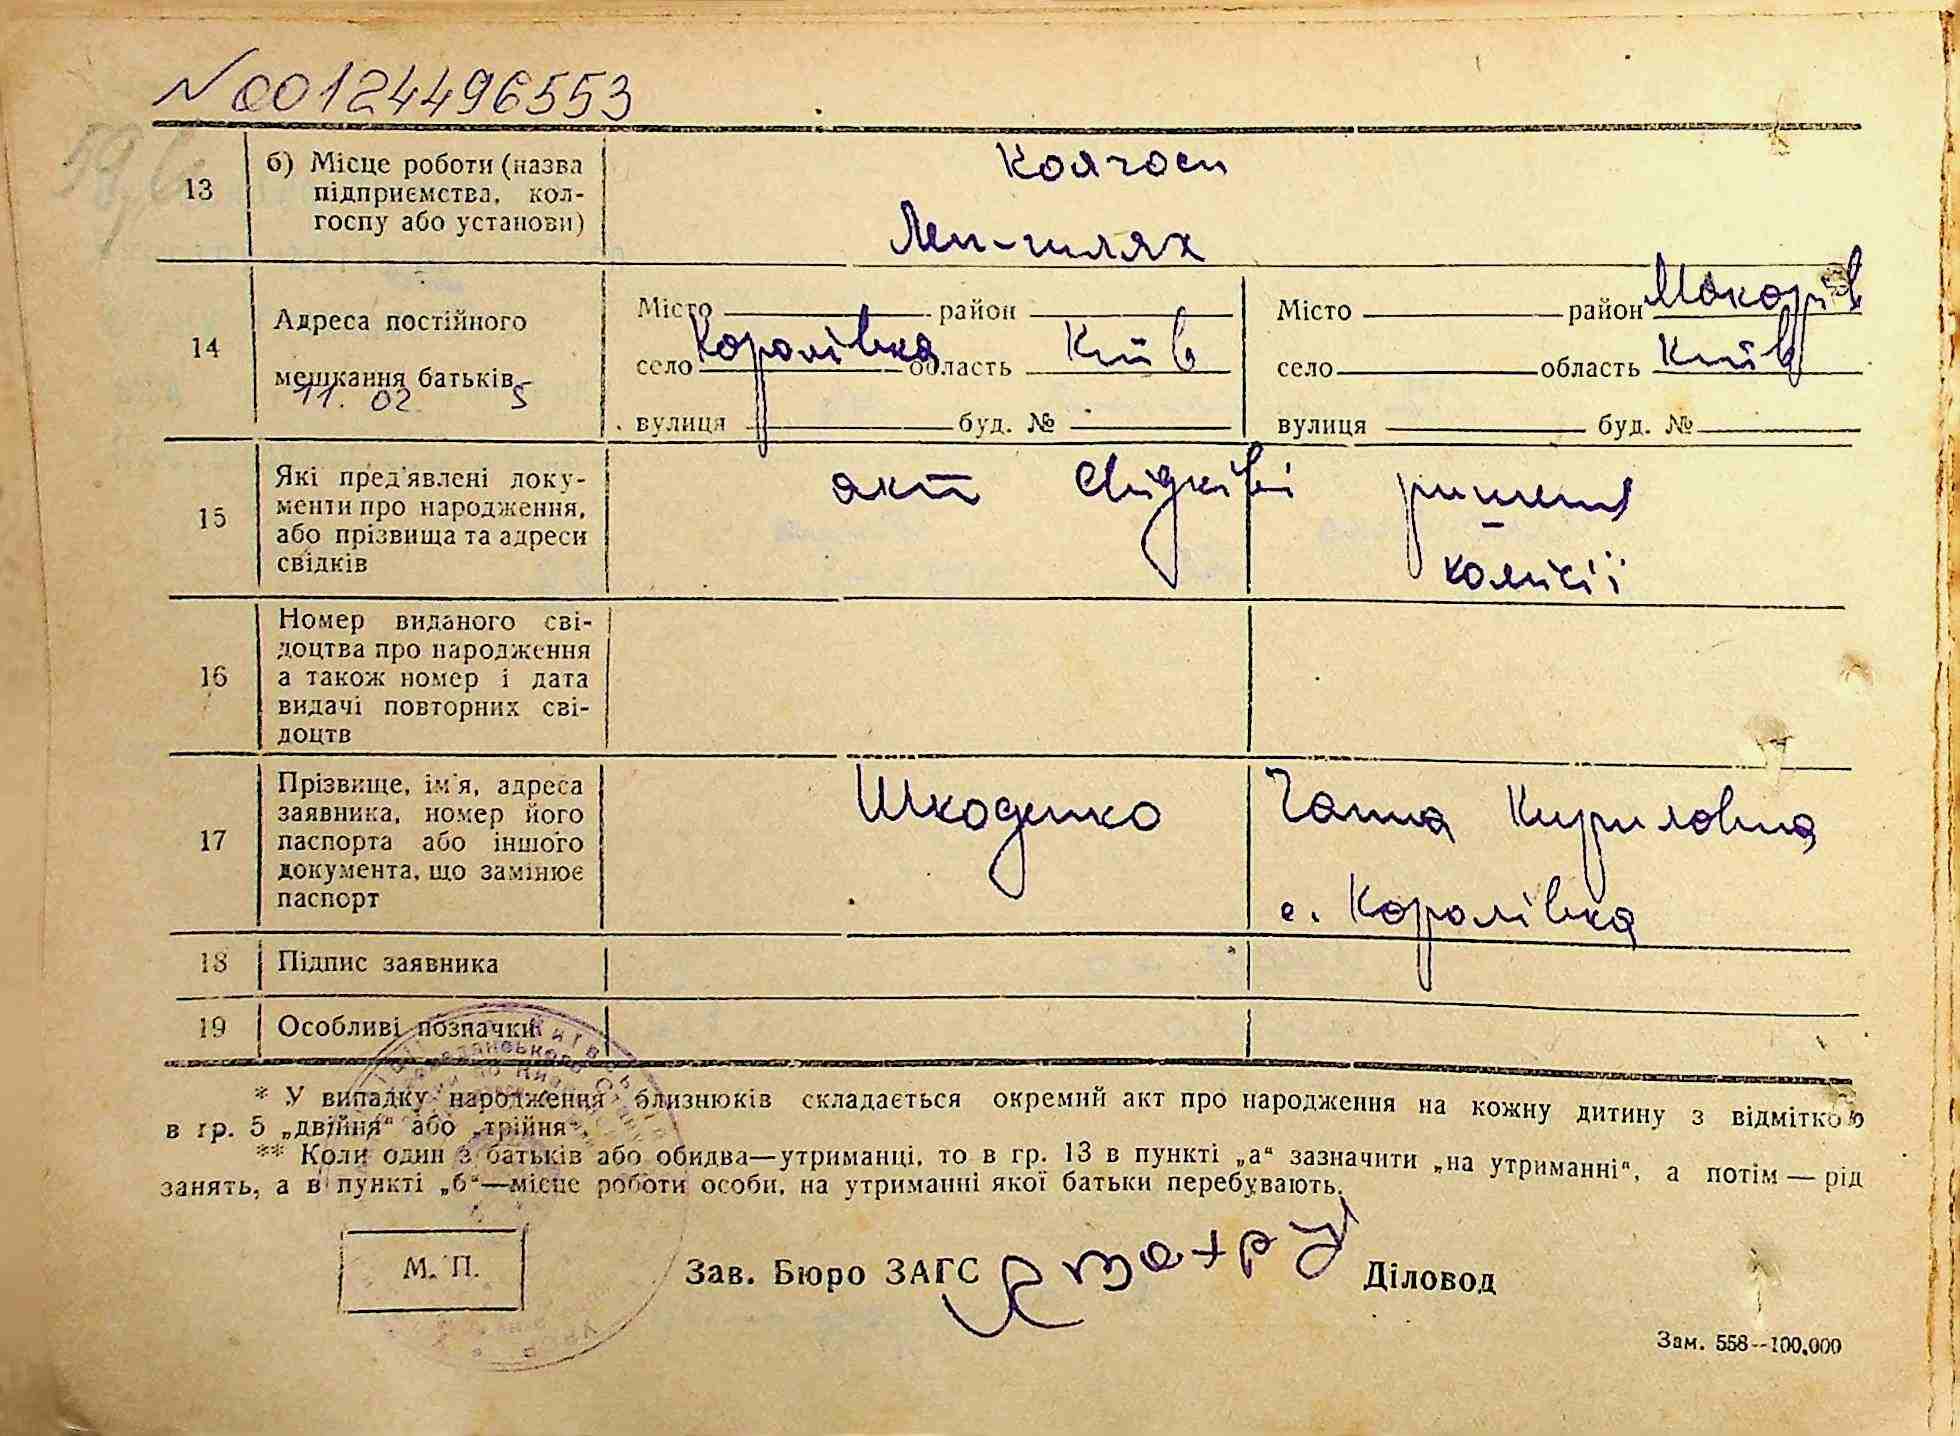 №00124496553
13 б) Місце роботи (назва
підприємства, кол-
госпу або установи)
Колгосп
Лен-шлях
14 Адреса постійного
мешкання батьків
11. 02
Місто район
село Королівка область Київ
вулиця буд. №
Місто район Макарів
село область Київ
вулиця буд. №
15 Які пред'явлені доку-
менти про народження,
або прізвища та адреси
свідків
акт свідків рішення
комісії
16 Номер виданого сві-
доцтва про народження
а також номер і дата
видачі повторних сві-
доцтв
17 Прізвище, ім'я, адреса
заявника, номер його
паспорта або іншого
документа, що замінює
паспорт
Шкоденко Ганна Кириловна
с. Королівка
18 Підпис заявника
19 Особливі позначки
* У випадку народження близнюків складається окремий акт про народження на кожну дитину з відміткою
в гр. 5 „двійня“ або „трійня“.
** Коли один з батьків або обидва—утриманці, то в гр. 13 в пункті „а“ зазначити „на утриманні“, а потім — рід
занять, а в пункті „б“—місце роботи особи, на утриманні якої батьки перебувають.
М. П.
Зав. Бюро ЗАГС Діловод
Зам. 558--100.000